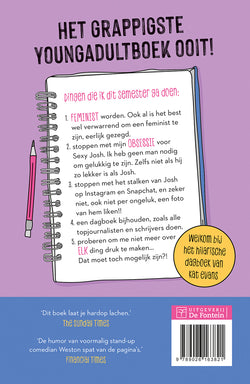 HET GRAPPIGSTE
YOUNGADULTBOEK OOIT!
Dingen die ik dit semester ga doen:
1. FEMINIST worden. Ook al is het best
wel verwarrend om een feminist te
zijn, eerlijk gezegd.
2. stoppen met mijn OBSESSIE voor
Sexy Josh. Ik heb geen man nodig
om gelukkig te zijn. Zelfs niet als hij
zo lekker is als Josh.
3. stoppen met het stalken van Josh
op Instagram en Snapchat, en zeker
niet, ook niet per ongeluk, een foto
van hem liken!!
4. een dagboek bijhouden, zoals alle
topjournalisten en schrijvers doen.
5. proberen om me niet meer over
ELK ding druk te maken...
Dat moet toch mogelijk zijn?!
Welkom bij
het hilarische
dagboek van
Kat Evans
'Dit boek laat je hardop lachen.'
The Sunday Times
'De humor van voormalig stand-up
comedian Weston spat van de pagina's.'
Financial Times
UITGEVERIJ
De Fontein
9789026163821